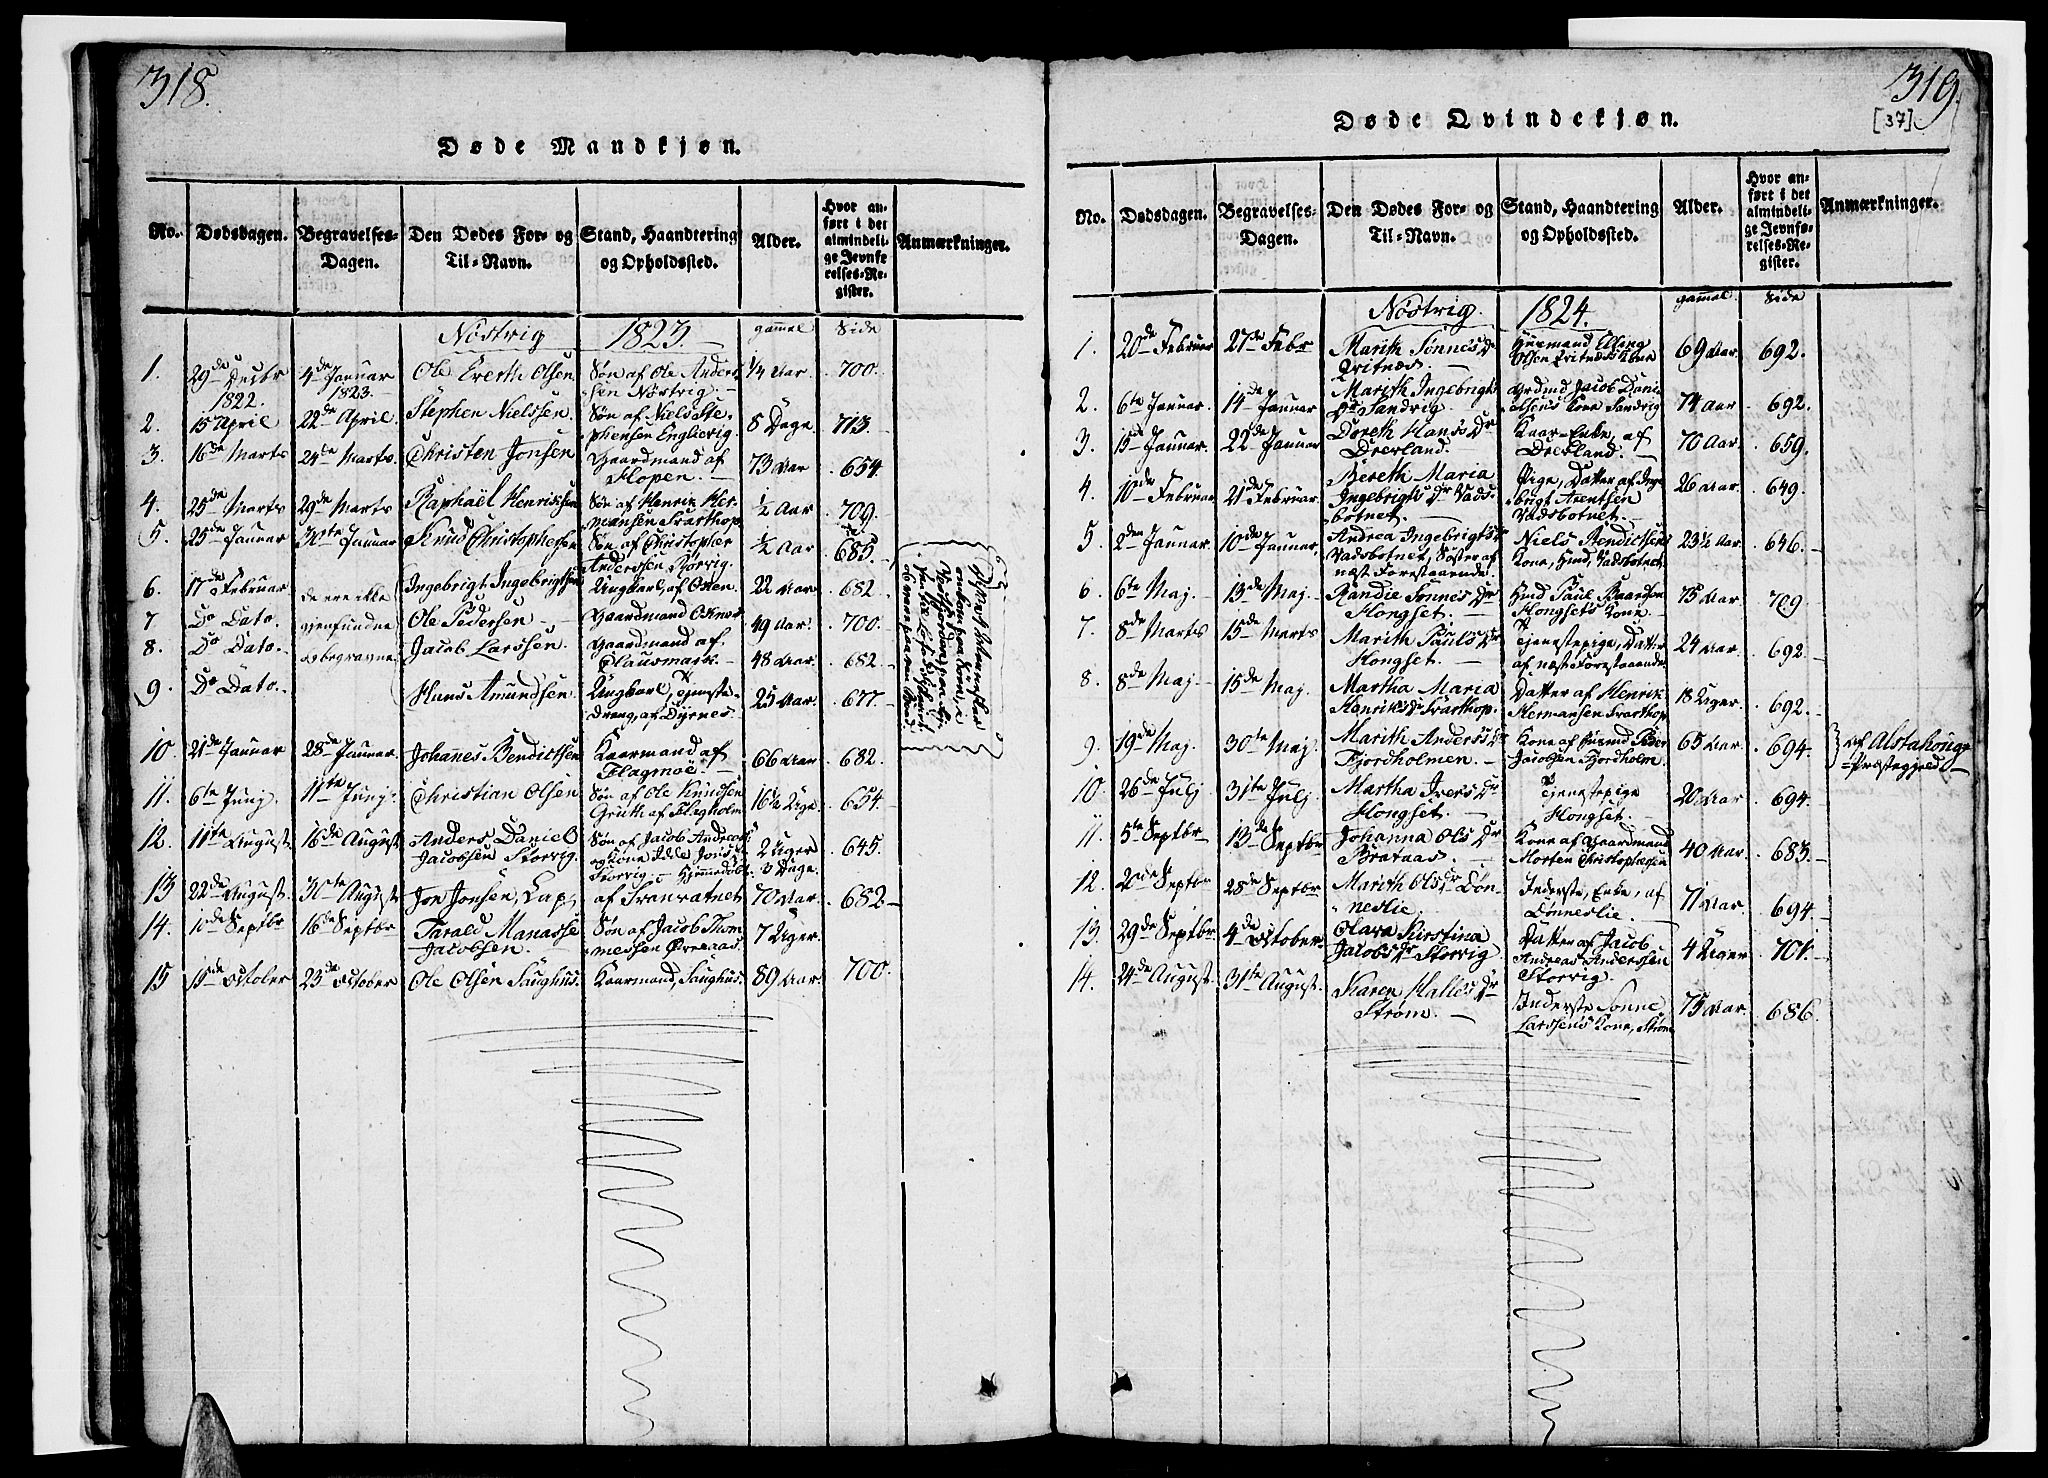 318.
Døde Mandkjøn.
No.
Dødsdagen.
Begravelses-
Dagen.
Den Dødes For- og
Til-Navn.
Stand, Haandtering
og Opholdssted.
Alder.
Hvor an-
ført i det
almindeli-
ge Jevnfø
relses-Re-
gister.
Anmærkninger.
Nöstvig 1823. gammel Side
1. 29de Decbr 1822. 4de Januar 1823. Ole Everth Olsen Søn af Ole Anders-
sen Nöstvig. ¼ Aar. 700.
2. 15 April 22de April. Stephen Nielssen. Søn af Niels Ste-
phensen Englevig. 8 Dage. 713
3. 16de Marts 24de Marts. Christen Jonsen Gaardmand af
Hopen. 73 Aar 654
4. 25de Marts 29de Marts Raphaël Henrichsen Søn af Henrik Her-
mansen Svarthop. ½ Aar 709.
5. 25de Januar 30te Januar Knud Christophersen Søn af Christopher
Anderssen Störvig. ½ Aar 685.
6. 17de Februar de ere ikke Ingebrigt Ingebrigtsen Ungkarl, af Oxen. 22 Aar. 682.
7. Do Dato. gjenfundne Ole Pedersen Gaardmand Oxnes 49 Aar. 700.
8. Do Dato. obegravne Jacob Larssen. Gaardmand af
48 Aar. 682.
9. Do Dato. Hans Amundsen. Ungkarl, Tjeneste-
Dreng, af Dyrnes. 25 Aar. 677.
10. 21de Januar 28de Januar. Johannes Bendictsen Kaarmand af
Flagmoe. 66 Aar 682.
11. 6te Junj. 11te Junj. Christian Olsen Søn af Ole Knudsen
Gruth af Flagholm. 16½ Uge 654.
12. 11te August. 16de August Anders Daniel
Jacobsen Storvig. Søn af Jacob Andreas
og Kone
Storvig. Hjemmedøbt 2 Uger
3 Dage. 645.
13 22de August 30te August Jon Jonsen, Lap, af Svanvatnet 70 Aar. 682
14. 10de Septbr 16de Septbr Tarald Manasse
Jacobsen. Søn af Jacob Thom-
messen Øvreaas. 7 Uger.
15 15de October 23de October Ole Olsen Saughus. Kaarmand, Saughus. 89 Aar 700.
319.
[37]
Døde Qvindekjøn.
No.
Dødsdagen.
Begravelses-
Dagen.
Den Dødes For- og
Til-Navn.
Stand, Haandtering
og Opholdssted.
Alder.
Hvor an-
ført i det
almindeli-
ge Jevnfø-
relses-Re-
gister.
Anmærkninger.
Nöstvig. 1824. gammel. Side
1. 20de Februar 27de Febr Marith Sönnes Dr
Qvitnæs. Huusmand Elling
Olsen Qvitnæs's Kone 69 Aar. 692.
2. 6te Januar. 14de Januar Marith Ingebrigts
Dr Sandvig Jacob Dani-
elsens Kone Sandvig 74 Aar. 692.
3. 15de Januar. 22de Januar Doreth Hans's Dr
Drevland. Kaar-Enke, af
Drevland. 70 Aar. 659.
4. 10de Februar. 21de Februar. Bereth Maria
Ingebrigts Dr Vads-
botnet. Pige, Datter af Inge
brigt Arentsen
Vadsbotnet. 26 Aar. 649.
5. 2den Januar. 10de Januar. Andrea Ingebrigts Dr
Vadsbotnet, Søster af
næst Forestaaende. Niels Bendictsens
Kone, Vadsbotnet. 23½ Aar. 646.
6. 6te Maj. 13de Maj. Randie Sönnes Dr
Hongset. Paul Baardsen
Hongsets Kone. 75 Aar 709.
7. 8de Marts 15de Marts Marith Pauls Dr
Hongset. Tjenestepige, Datter
af næst Forestaaende. 24 Aar. 692.
8. 8de Maj 15de Maj. Martha Maria
Henriks Dr Svarthop. Datter af Henrik
Hermansen Svarthop. 18 Uger. 692.
9. 19de Maj. 30te Maj. Marith Anders's Dr
Fjordholmen. Kone af Peder
Jacobsen Fjordholm. 65 Aar. 694. af Alstahoug-
Præstegjeld
10. 26de Julj 31te Julj. Martha Ivers Dr
Hongset. Tjenestepige
Hongset. 20 Aar 694.
11. 5te Septbr 13de Septbr Johanna Ols Dr
Brataas. Kone af Gaardmand
Morten Christophersen 40 Aar. 683.
12. 20de Septbr 28de Septbr Marith Ols Dr Døn-
neslie. Inderste, Enke, af
Dønneslie. 71 Aar. 694.
13. 29de Septbr 4de October. Olava Kirstina
Jacobs Dr Storvig. Datter af Jacob
Andreas Anderssen
Storvig 4 Uger 701.
14. 24de August. 31te August. Karen Halles Dr
Strøm. Inderste Sönne
Larssens Kone, Strøm 75 Aar. 686.